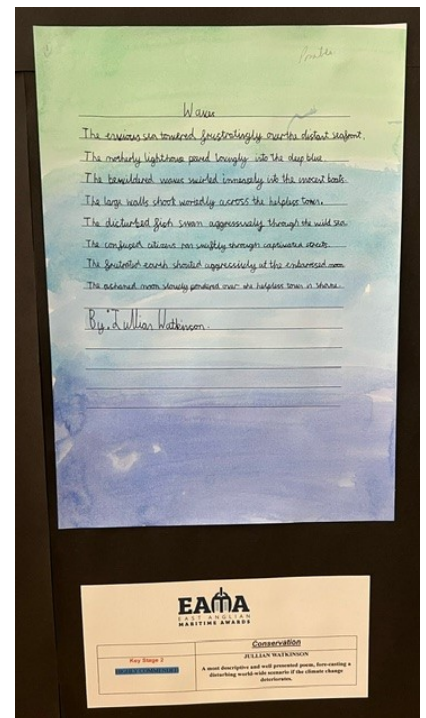 Waves
The envious sea towered frustratingly over the distant seafront.
The motherly lighthouse peered lovingly into the deep blue.
The bewildered waves swirled immensely into the inocent boats.
The large walls shook worriedly across the helpless town.
The disturbed fish swam aggressively through the wild sea.
The confused citizens ran swiftly through captivated streets.
The frustrated earth shouted aggressively at the embarrased moon
The ashamed moon slowly pondered over the helpless town in shame.
By: Jullian Watkinson.
EAMA
EAST ANGLIAN
MARITIME AWARDS
Conservation
Key Stage 2
JULLIAN WATKINSON
HIGHLY COMMENDED
A most descriptive and well presented poem, fore-casting a
disturbing world-wide scenario if the climate change
deteriorates.